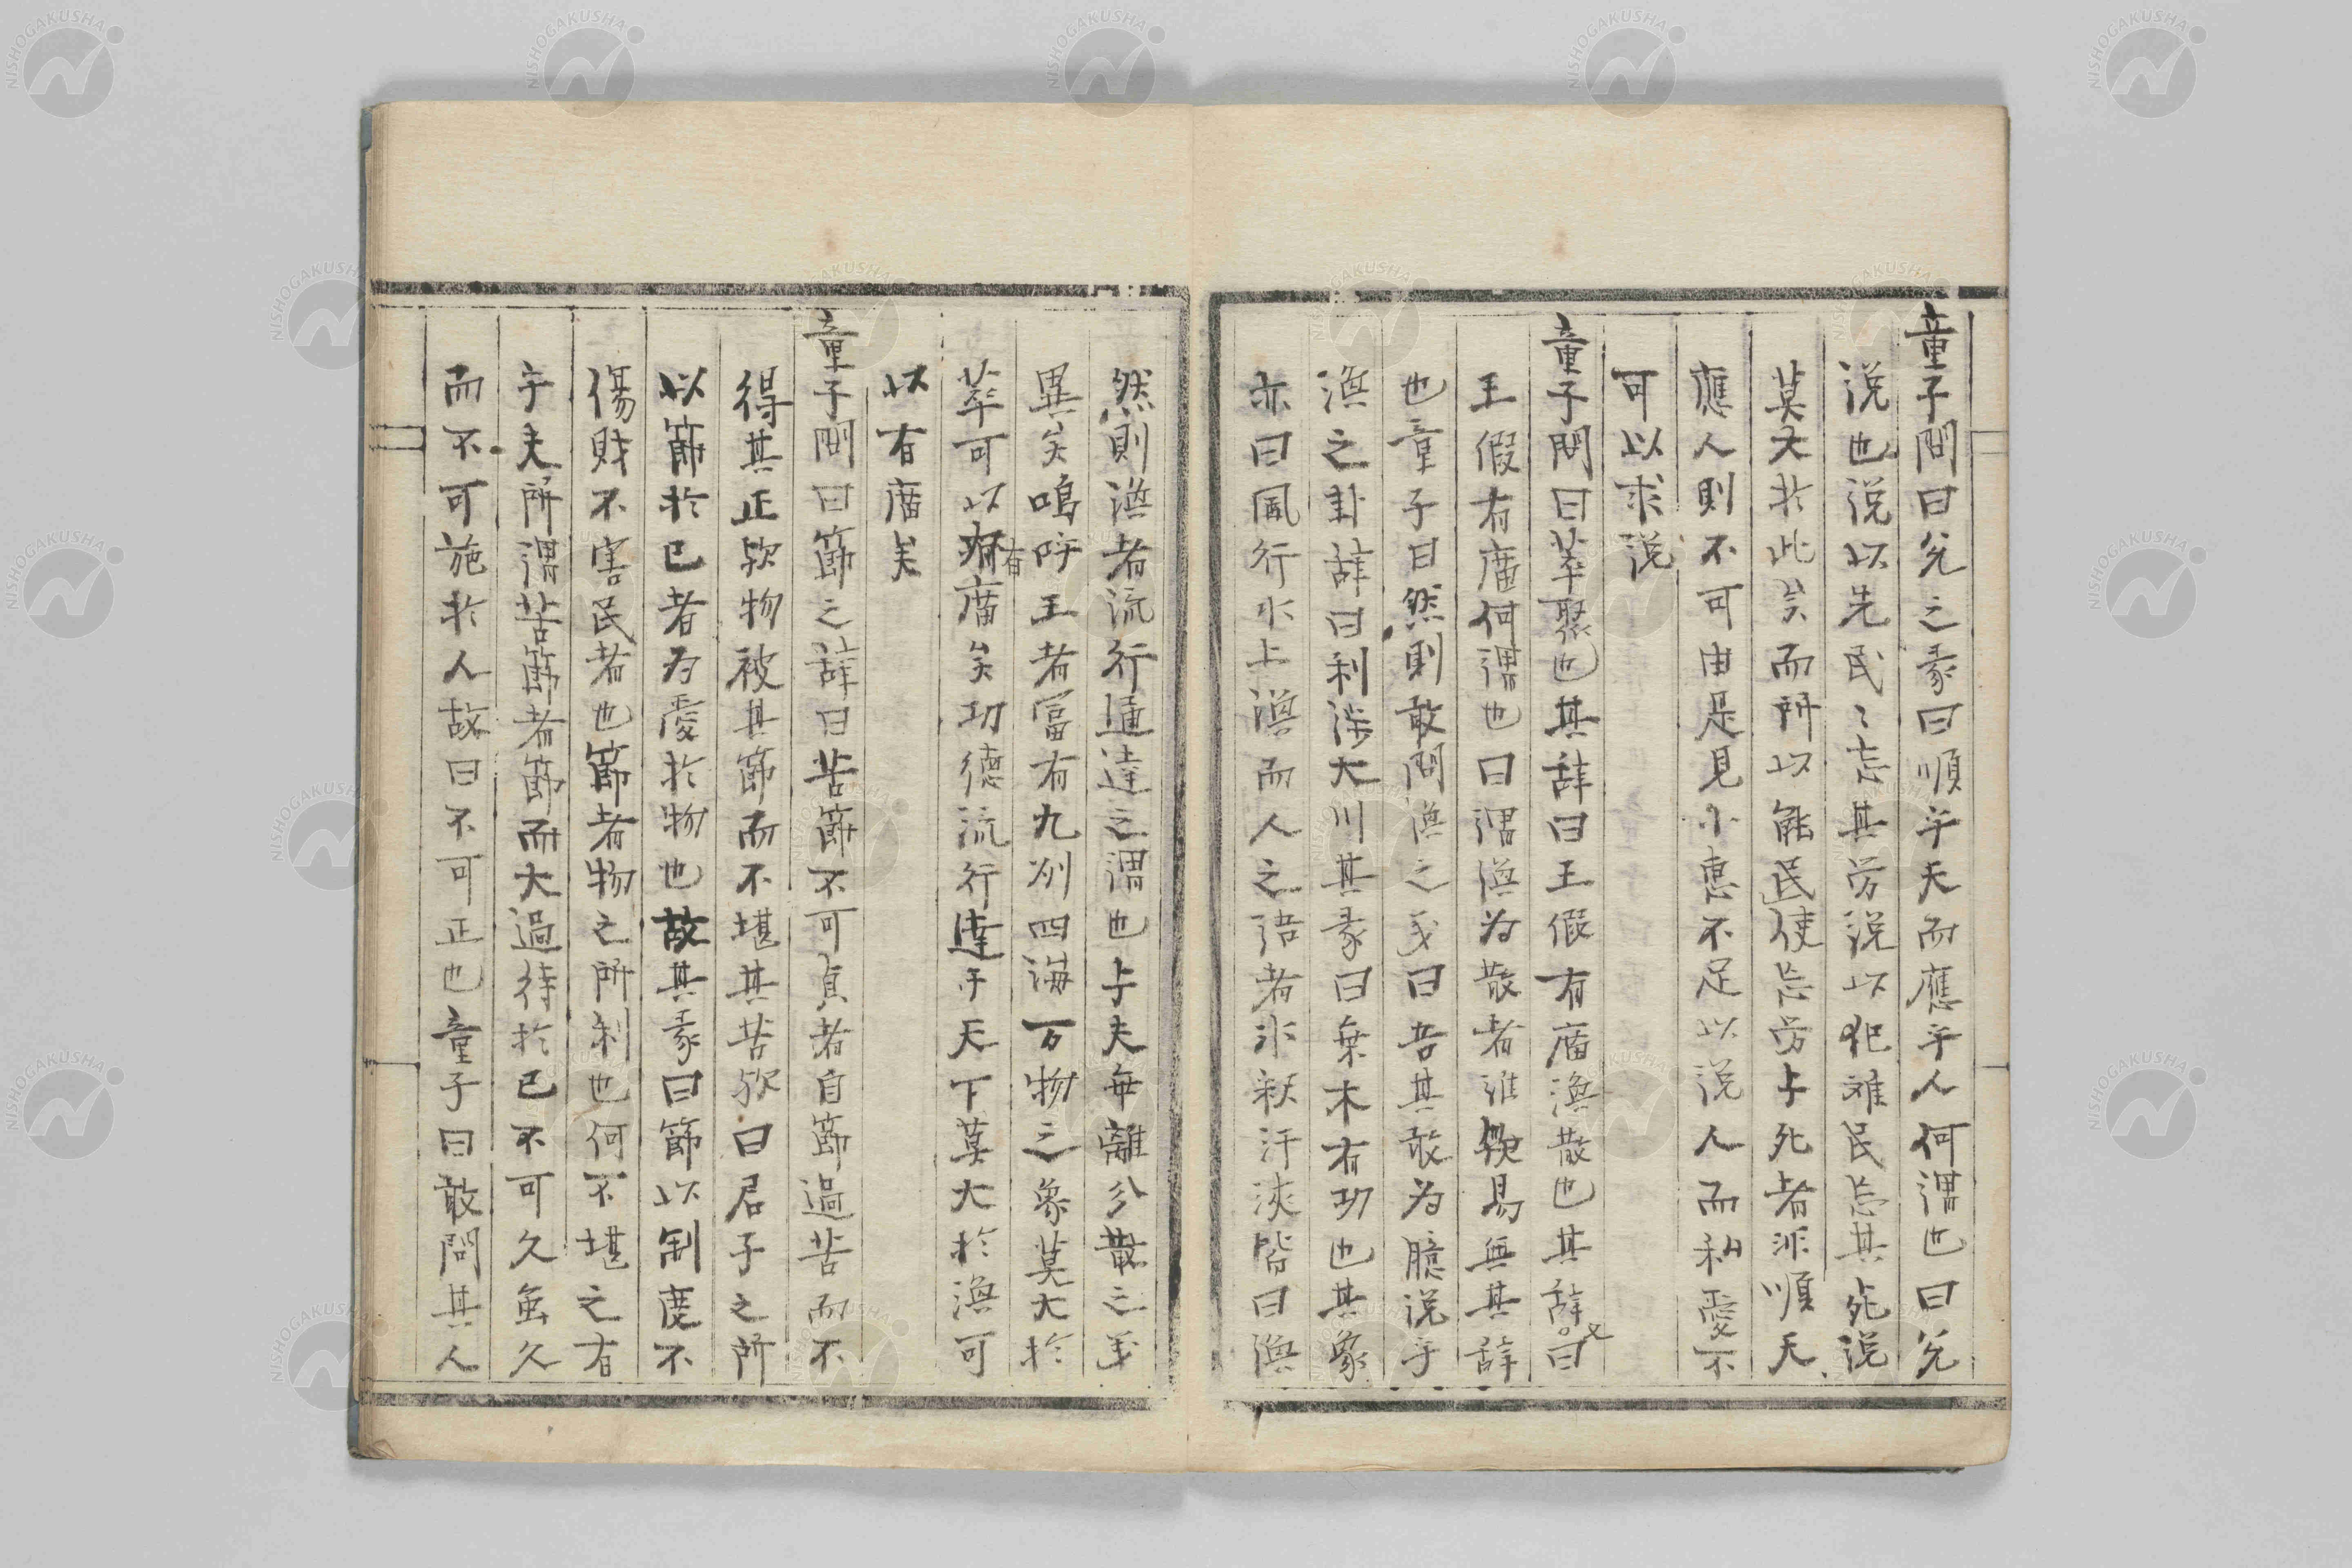 童子問曰兌之彖曰順乎天而應乎人何謂也曰兌
說也說以先民〻忘其労說以犯难民忘其死說
莫大於此矣而所以能民使忘労与死者非順天
應人則不可由是見小惠不足以說人而私愛不
可以求說
童子問曰萃聚也其辞曰王假有庿渙散也其辞又曰
王假有庿何謂也曰謂渙为散者誰歟易無其辞
也童子曰然則敢問渙之義曰吾其敢为臆说乎
渙之卦辞曰利涉大川其彖曰乗木有功也其象
亦曰風行水上渙而人之語者冰釈汗浹皆曰渙
然則渙者流行通達之謂也与夫毎離分散之義
異矣嗚呼王者富有九州四海万物之象莫大於
萃可以有庿矣功德流行達于天下莫大於渙可
以有庿矣
童子問曰節之辞曰苦節不可貞者自節過苦而不
得其正欤物被其節而不堪其苦欤曰君子之所
以節於已者为愛於物也故其彖曰節以制度不
傷財不害民者也節者物之所制也何不堪之有
乎夫所謂苦節者節而大過待於已不可久虽久
而不可施於人故曰不可正也童子曰敢問其人
NISHOGAKUSHA